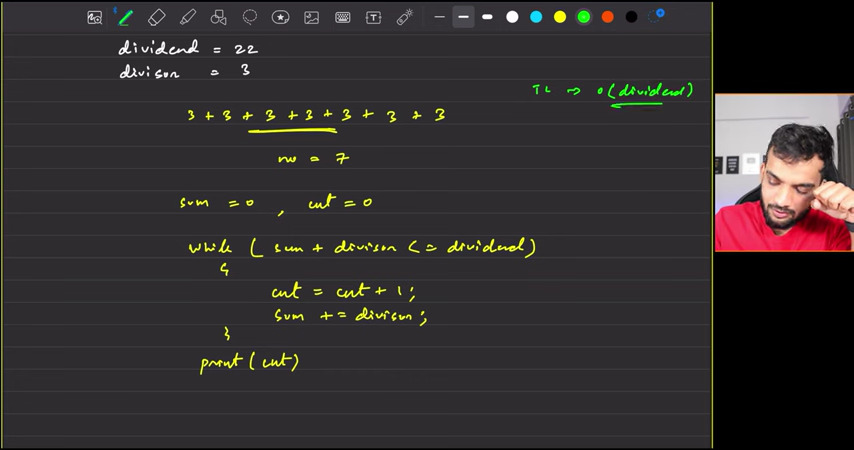 dividend = 22
divisor = 3
TC → O(dividend)
3 + 3 + 3 + 3 + 3 + 3 + 3
no = 7
sum = 0 , cnt = 0
while ( sum + divisor <= dividend)
{
cnt = cnt + 1;
sum += divisor;
}
print(cnt)